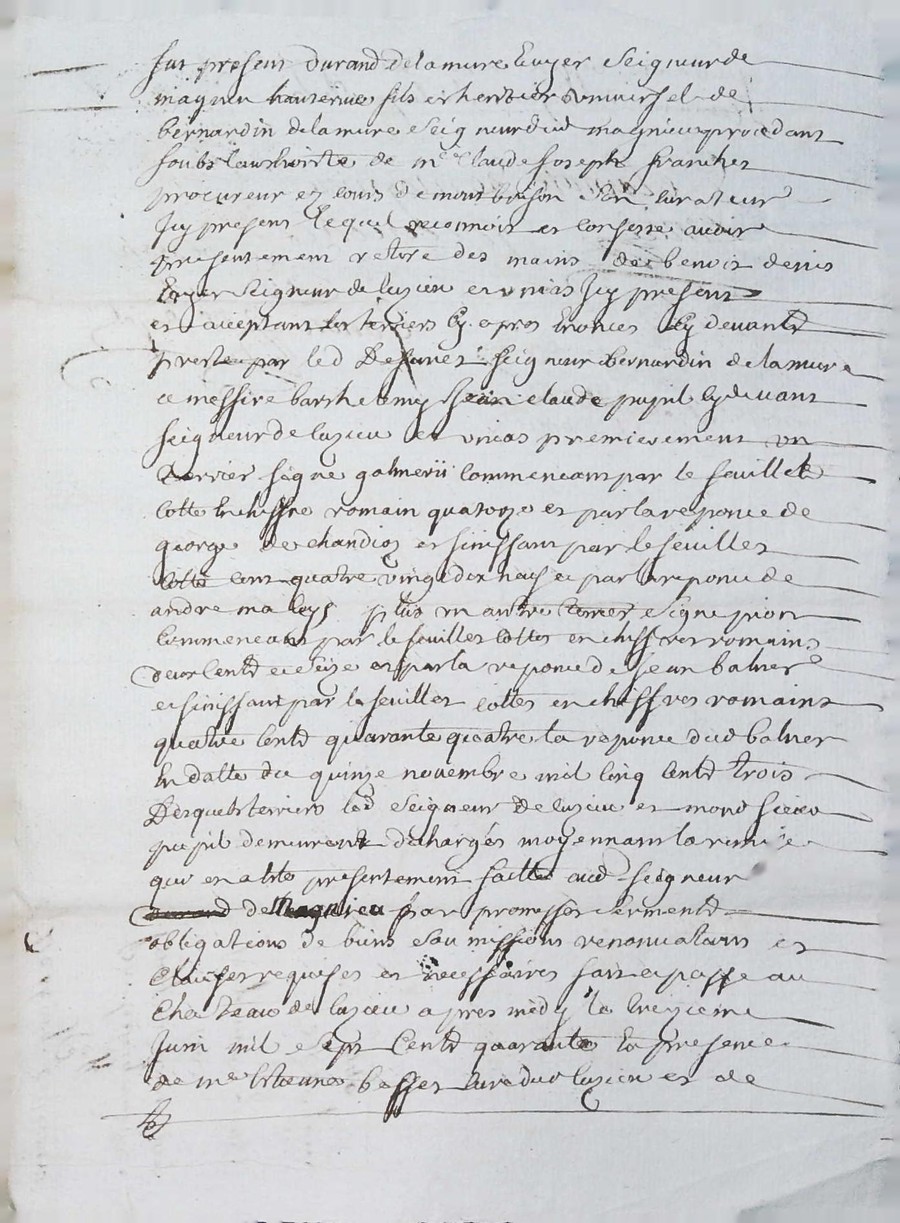 fut present durand delamure Ecuyer Seigneur de
magnieu hauterive fils et heritier universel de
bernardin delamure Seigneur dud magnieu procedant
soubs lauthorité de me Claude Joseph franchet
procureur ez cours de montbrison Son curateur
Icy present lequel reconnoit et confesse avoir
presentement retiré des mains de benoit denis
Ecuyer Seigneur de Cuzieu et unias Icy present
et acceptant les terriers Cy apres Enoncés Cy devant
prestes par led Defunct Seigneur bernardin delamure
a messire barthelemy Jean claude pupil Cydevant
Seigneur de Cuzieu et unias premierement un
terrier signé galmerii Commencant par le feuillet
Cotté En chiffre romain quatorze et par la reponce de
george de chandioz et finissant par le feuillet
Cotté cent quatre vingt dix neuf et par la reponce de
andre ma plus un autre terrier Signé pion
Commencant par le feuillet Cotté en chiffres romains
deux Cents et seize et par la reponce de Jean balner
et finissant par le feuillet cotté en chiffres romains
quatre Cents quarante quatre la reponce dud balner
En datte du quinze novembre mil Cinq Cents trois
Desquels terriers led Seigneur de Cuzieu et mond sieur
pupil demeurent dechargés moyennant la remise
qui en a été presentement faitte aud Seigneur
durand de Magnieu par promesses serments
obligations de biens Soumissions renonciations et
Clauses requises et necessaires fait et passé au
Chateau de Cuzieu apres midy le treizieme
Juin mil Sept Cents quarante En presence
de me Etienne besset Curé dud Cuzieu et de